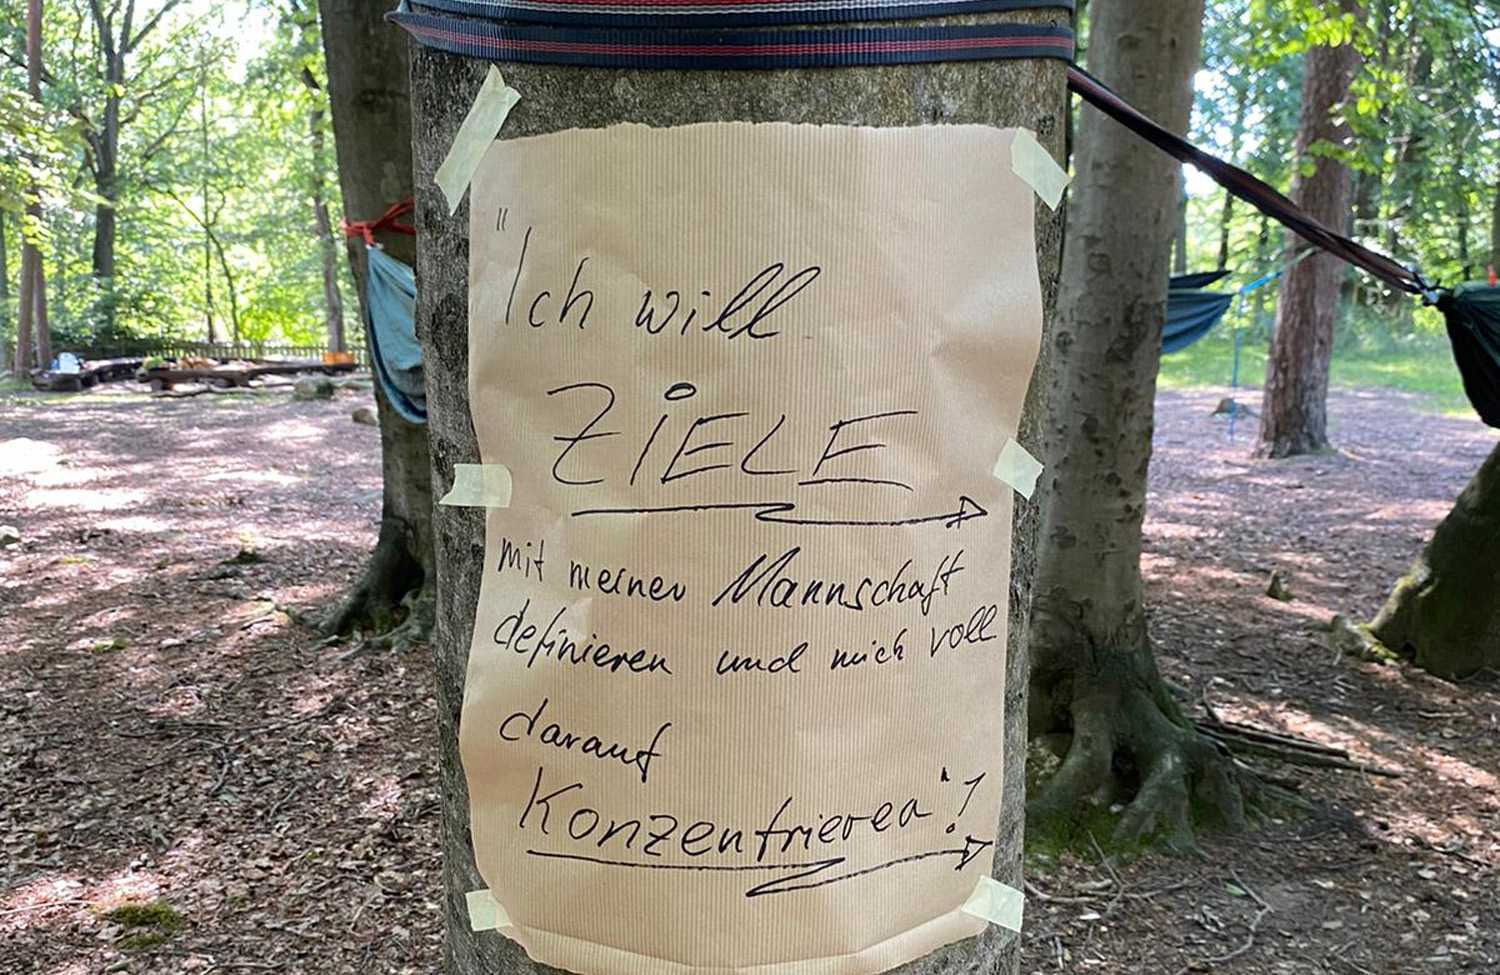 "Ich will
ZiELE
mit meiner Mannschaft
definieren und mich voll
darauf
Konzentrieren"!